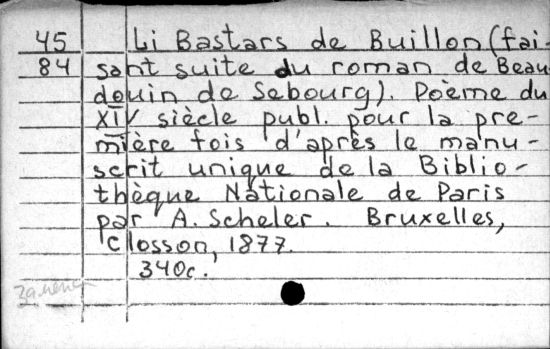 45 Li Bastars de Buillon (fai-
84 sant suite du roman de Beau
douin de Sebourg). Poème du
XIV siècle publ. pour la pre-
mière fois d'après le manu-
scrit unique de la Biblio-
thèque Nationale de Paris
par A. Scheler. Bruxelles,
Closson, 1877.
340c.